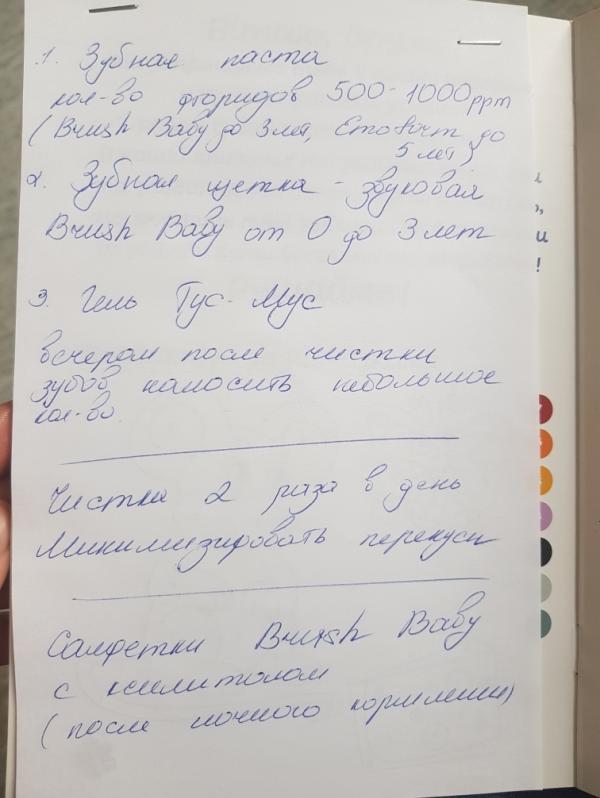 1. Зубная паста
кол-во фторидов 500-1000 ppm
(Brush Baby до 3 лет, до
5 лет)
2. Зубная щетка - звуковая
Brush Baby от 0 до 3 лет
3. Гель Тус-Мус
вечером после чистки
зубов наносить небольшое
кол-во.
Чистка 2 раза в день
Минимизировать перекусы
Салфетки Brush Baby
с ксилитолом
(после ночного кормления)